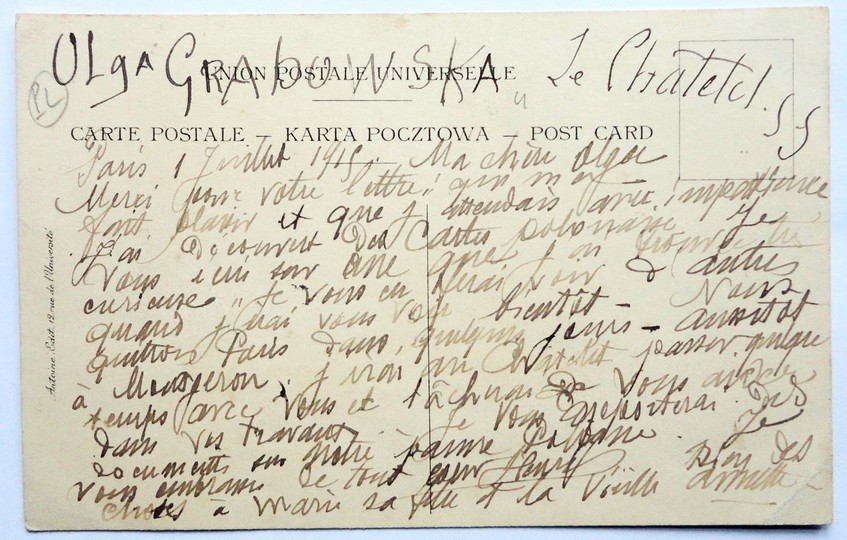 OLGA GRABOWSKA Le Chatelet. SS
PL
UNION POSTALE UNIVERSELLE
CARTE POSTALE – KARTA POCZTOWA – POST CARD
Paris 1 Juillet 1915 – Ma chère Olga
Merci pour votre lettre, qui m'a
fait plaisir et que j'attendais avec impatience
J'ai découvert des Cartes polonaises Je
vous écris sur une que j'ai trouvée très
curieuse. Je vous en ferai voir d'autres
quand j'irai vous voir bientôt – Nous
quittons Paris dans quelques jours – aussitôt
à Montgeron, j'irai au Chatelet passer quelque
temps avec vous et tâcherai de vous aider
dans vos travaux. Je vous apporterai des
documents sur notre pauvre Pologne. Je
vous embrasse de tout cœur Bien des
choses à Marie sa fille et la vieille
Antoine, Edit. 12, rue de l'Université